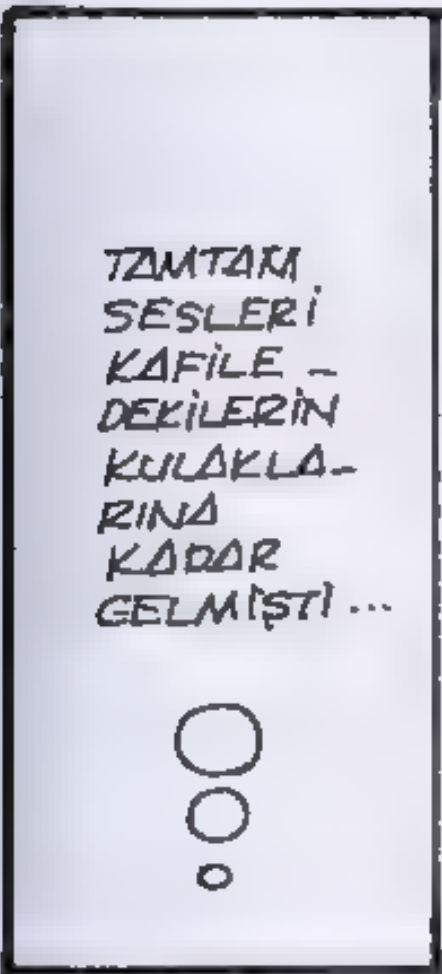 TAMTAM
SESLERİ
KAFİLE -
DEKİLERİN
KULAKLA-
RINA
KADAR
GELMİŞTİ ...